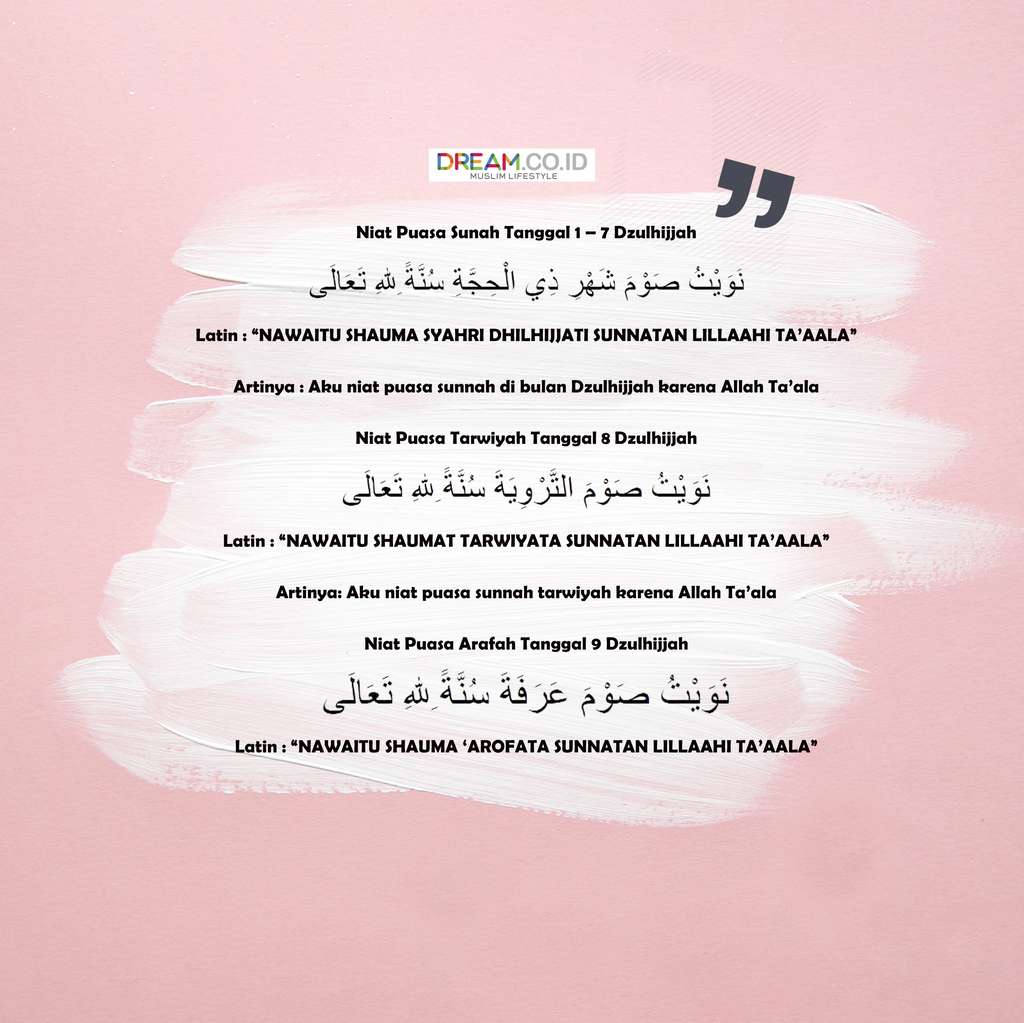 DREAM.CO.ID
MUSLIM LIFESTYLE
Niat Puasa Sunah Tanggal 1 – 7 Dzulhijjah
نَوَيْتُ صَوْمَ شَهْرِ ذِي الْحِجَّةِ سُنَّةً ِللهِ تَعَالَى
Latin : “NAWAITU SHAUMA SYAHRI DHILHIJJATI SUNNATAN LILLAAHI TA’AALA”
Artinya : Aku niat puasa sunnah di bulan Dzulhijjah karena Allah Ta’ala
Niat Puasa Tarwiyah Tanggal 8 Dzulhijjah
نَوَيْتُ صَوْمَ التَّرْوِيَةَ سُنَّةً ِللهِ تَعَالَى
Latin : “NAWAITU SHAUMAT TARWIYATA SUNNATAN LILLAAHI TA’AALA”
Artinya: Aku niat puasa sunnah tarwiyah karena Allah Ta’ala
Niat Puasa Arafah Tanggal 9 Dzulhijjah
نَوَيْتُ صَوْمَ عَرَفَةَ سُنَّةً ِللهِ تَعَالَى
Latin : “NAWAITU SHAUMA ‘AROFATA SUNNATAN LILLAAHI TA’AALA”